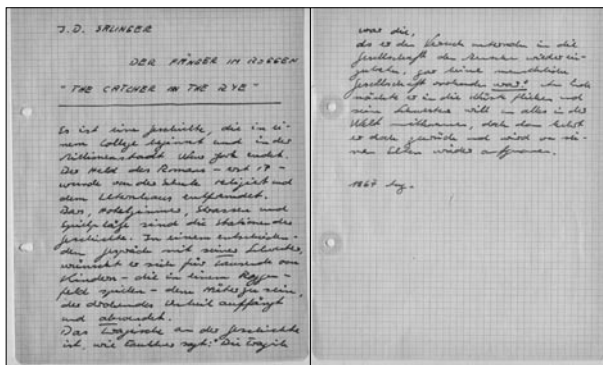 J.D. SALINGER
DER FÄNGER IM ROGGEN
"THE CATCHER IN THE RYE"
Es ist eine Geschichte, die in ei-
nem College beginnt und in der
Millionenstadt New York endet.
Der Held des Romans - erst 17 -
wurde von der Schule relegiert und
dem Elternhaus entfremdet.
Bars, Hotelzimmer, Strassen und
Spielplätze sind die Stationen der
Geschichte. In einem entscheiden-
den Gespräch mit seiner Schwester,
wünscht er sich für Tausende von
Kindern - die in einem Roggen-
feld spielen - dem Hüter zu sein,
der drohendes Unheil auffängt
und abwendet.
Das Tragische an der Geschichte
ist, wie Faulkner sagt: Die Tragik
war die,
als er den Versuch unternahm in die
Gesellschaft der Menschen wieder ein-
gar keine menschliche
Gesellschaft vorhanden war." Am Ende
möchte er in die Wüste fliehen und
seine Schwester will in alles in der
Welt mitkommen, doch dann kehrt
er doch zurück und wird von sei-
nen Eltern wieder aufgenommen.
1967 Aug.